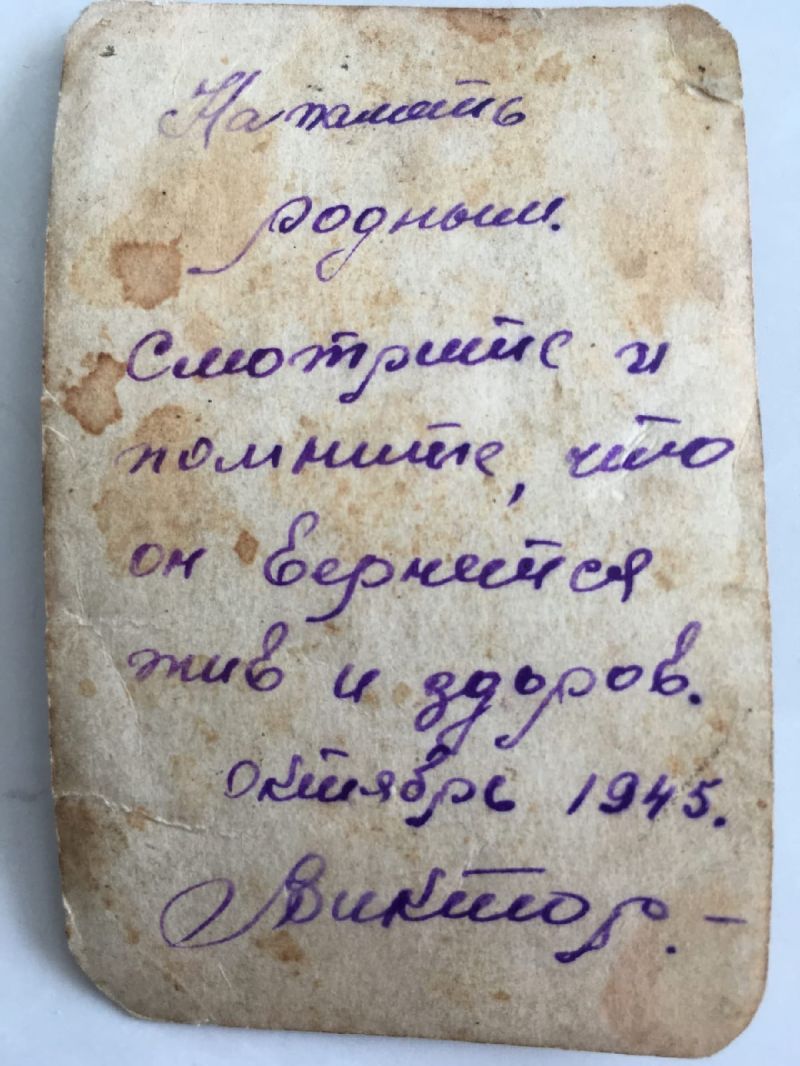 На память
родным.
Смотрите и
помните, что
он вернится
жив и здоров.
Октябрь 1945.
Виктор. –